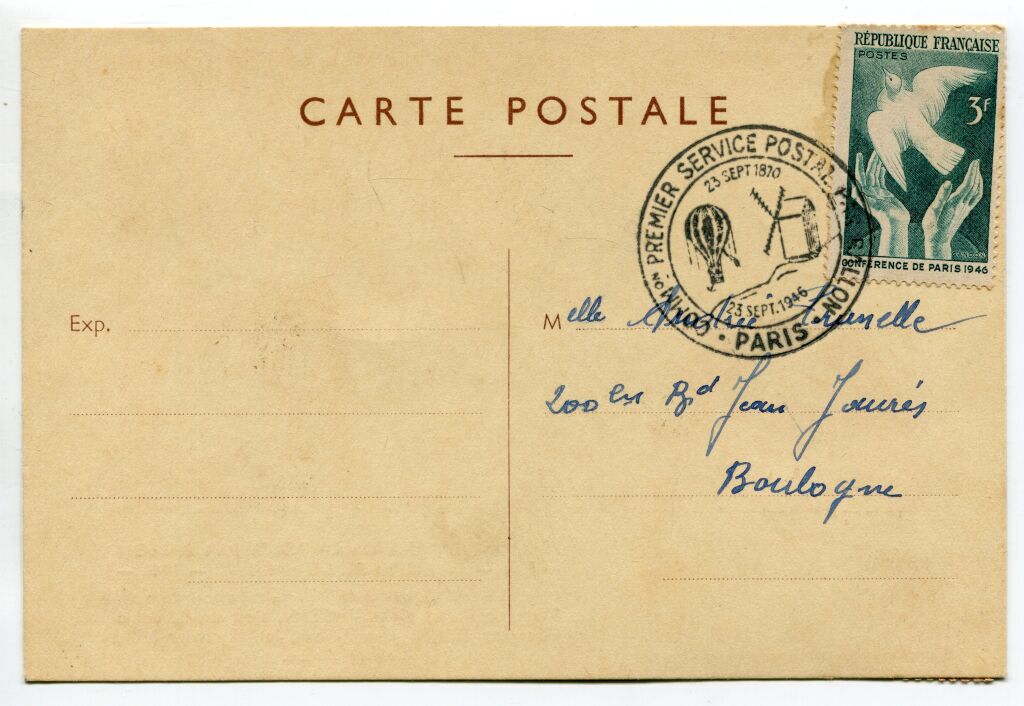 CARTE POSTALE
RÉPUBLIQUE FRANÇAISE
POSTES
3F
GANDON
CONFÉRENCE DE PARIS 1946
COMMÉMON PREMIER SERVICE POSTAL PAR BALLON
23 SEPT 1870
23 SEPT. 1946
• PARIS •
Exp.
Melle Andrée Brunelle
200 Bd Jean Jaurès
Boulogne